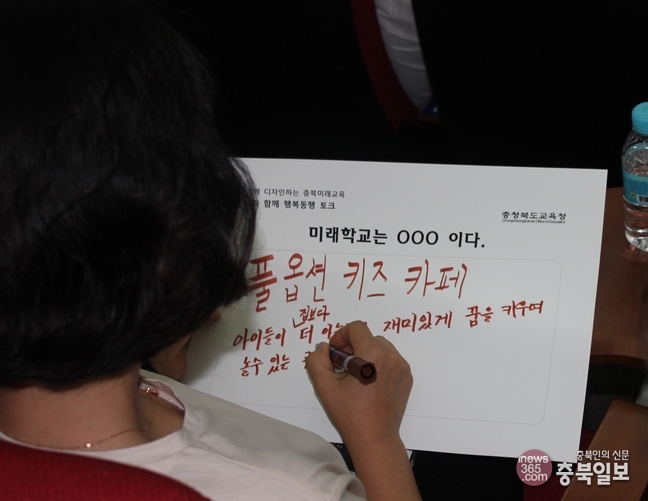 디자인하는 충북미래교육
함께 행복동행 토크
충청북도교육청
Chungcheongbuk-do Office of Education
미래학교는 OOO 이다.
풀옵션 키즈 카페
집보다
아이들이 더 재미있게 꿈을 키우며
놀수 있는
inews365.com
충북인의 신문
충북일보